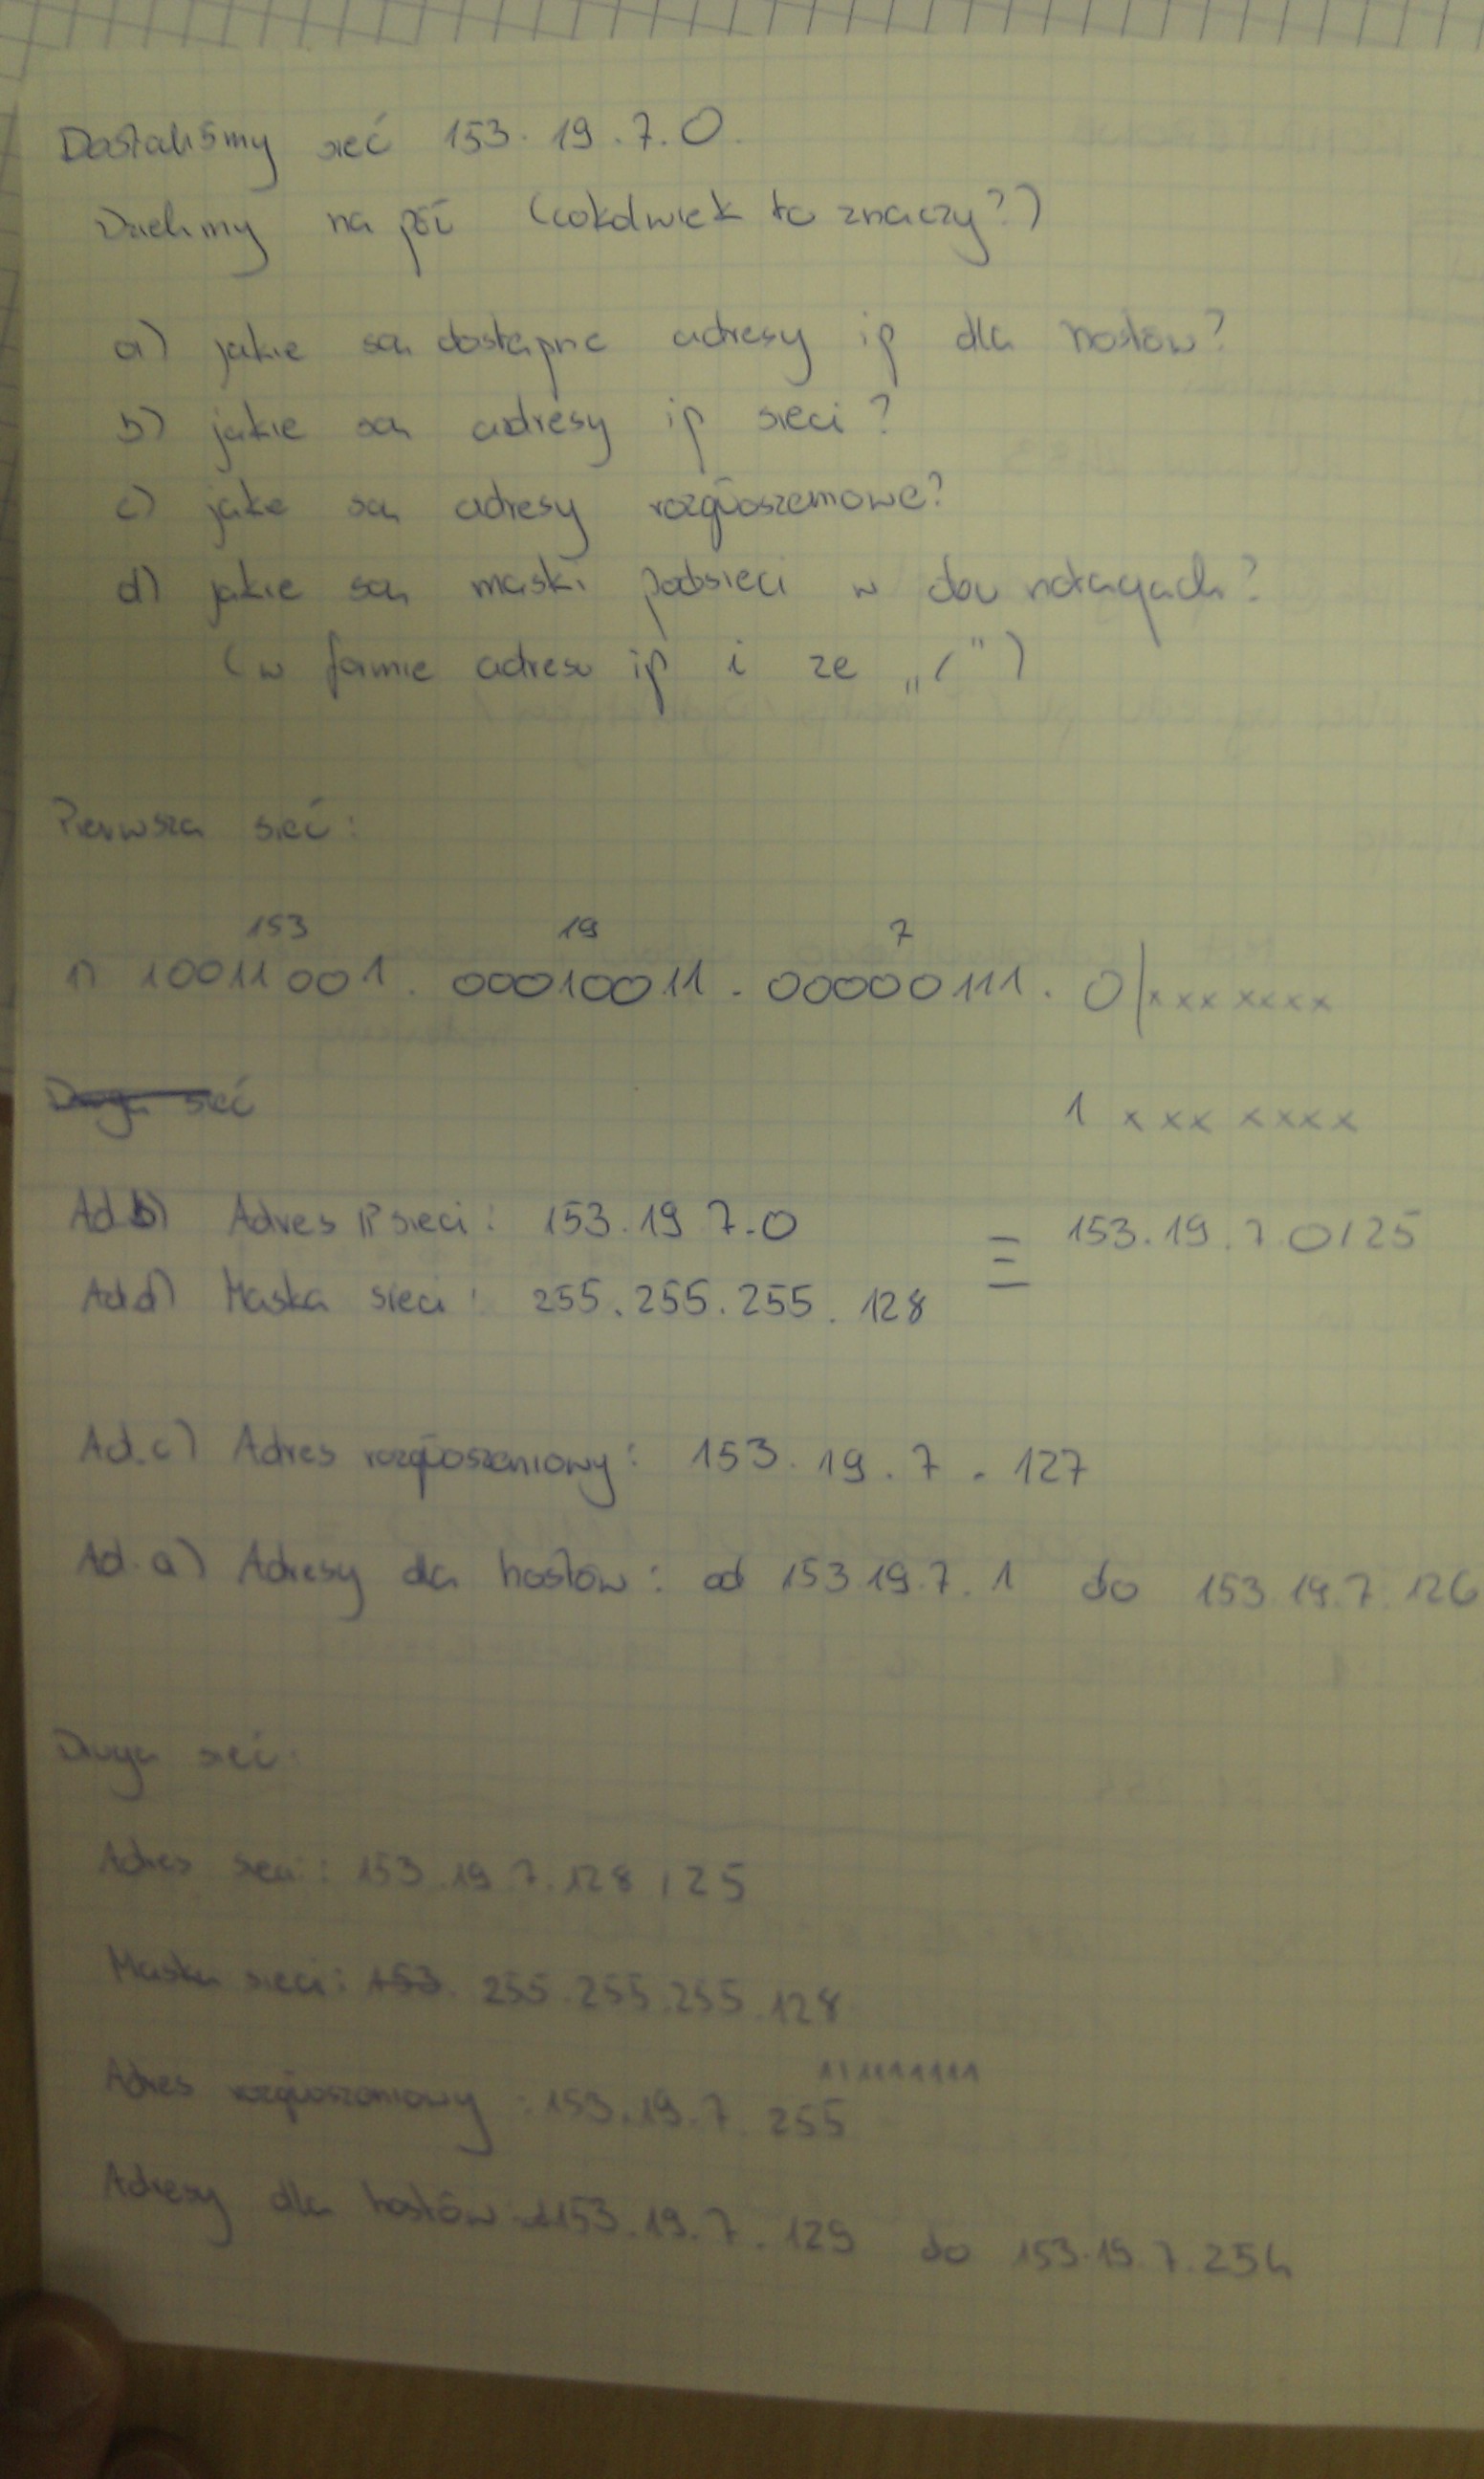 Dostaliśmy sieć 153.19.7.0.
Dzielimy na pół (cokolwiek to znaczy?)
a) jakie są dostępne adresy ip dla hostów?
b) jakie są adresy ip sieci?
c) jakie są adresy rozgłoszeniowe?
d) jakie są maski podsieci w dwu notacjach?
(w formie adresu ip i ze „/")
Pierwsza sieć:
153 19 7
1) 10011001. 00010011. 00000111. 0|xxx xxxx
Druga sieć
1 xxx xxxx
Ad.b) Adres IP sieci: 153.19 7.0 ≡ 153.19.7.0/25
Ad.d) Maska sieci: 255.255.255.128
Ad.c) Adres rozgłoszeniowy: 153.19.7.127
Ad.a) Adresy dla hostów: od 153 19.7.1 do 153.19.7.126
Druga sieć:
Adres sieci: 153.19.7.128 /25
Maska sieci: 153. 255.255.255.128
11111111
Adres rozgłoszeniowy: 153.19.7.255
Adresy dla hostów: 153.19.7.129 do 153.19.7.254